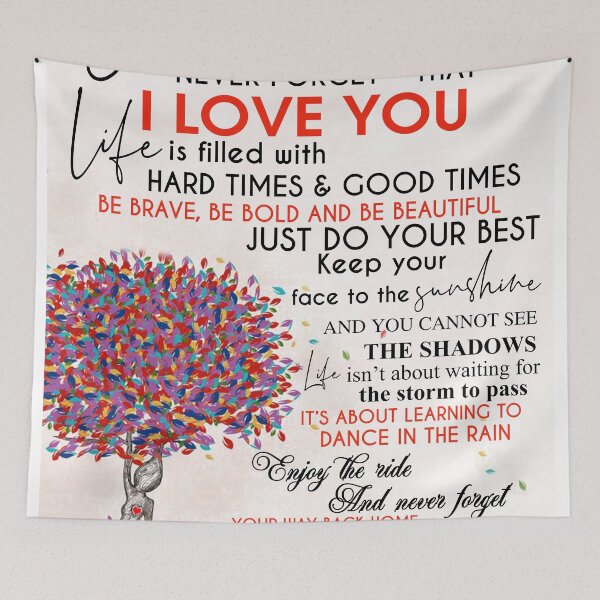 NEVER FORGET THAT
I LOVE YOU
Life is filled with
HARD TIMES & GOOD TIMES
BE BRAVE, BE BOLD AND BE BEAUTIFUL
JUST DO YOUR BEST
Keep your
face to the sunshine
AND YOU CANNOT SEE
THE SHADOWS
Life isn't about waiting for
the storm to pass
IT'S ABOUT LEARNING TO
DANCE IN THE RAIN
Enjoy the ride
And never forget
YOUR WAY BACK HOME